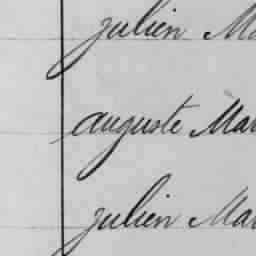 julien Ma
auguste Mar
julien Mar